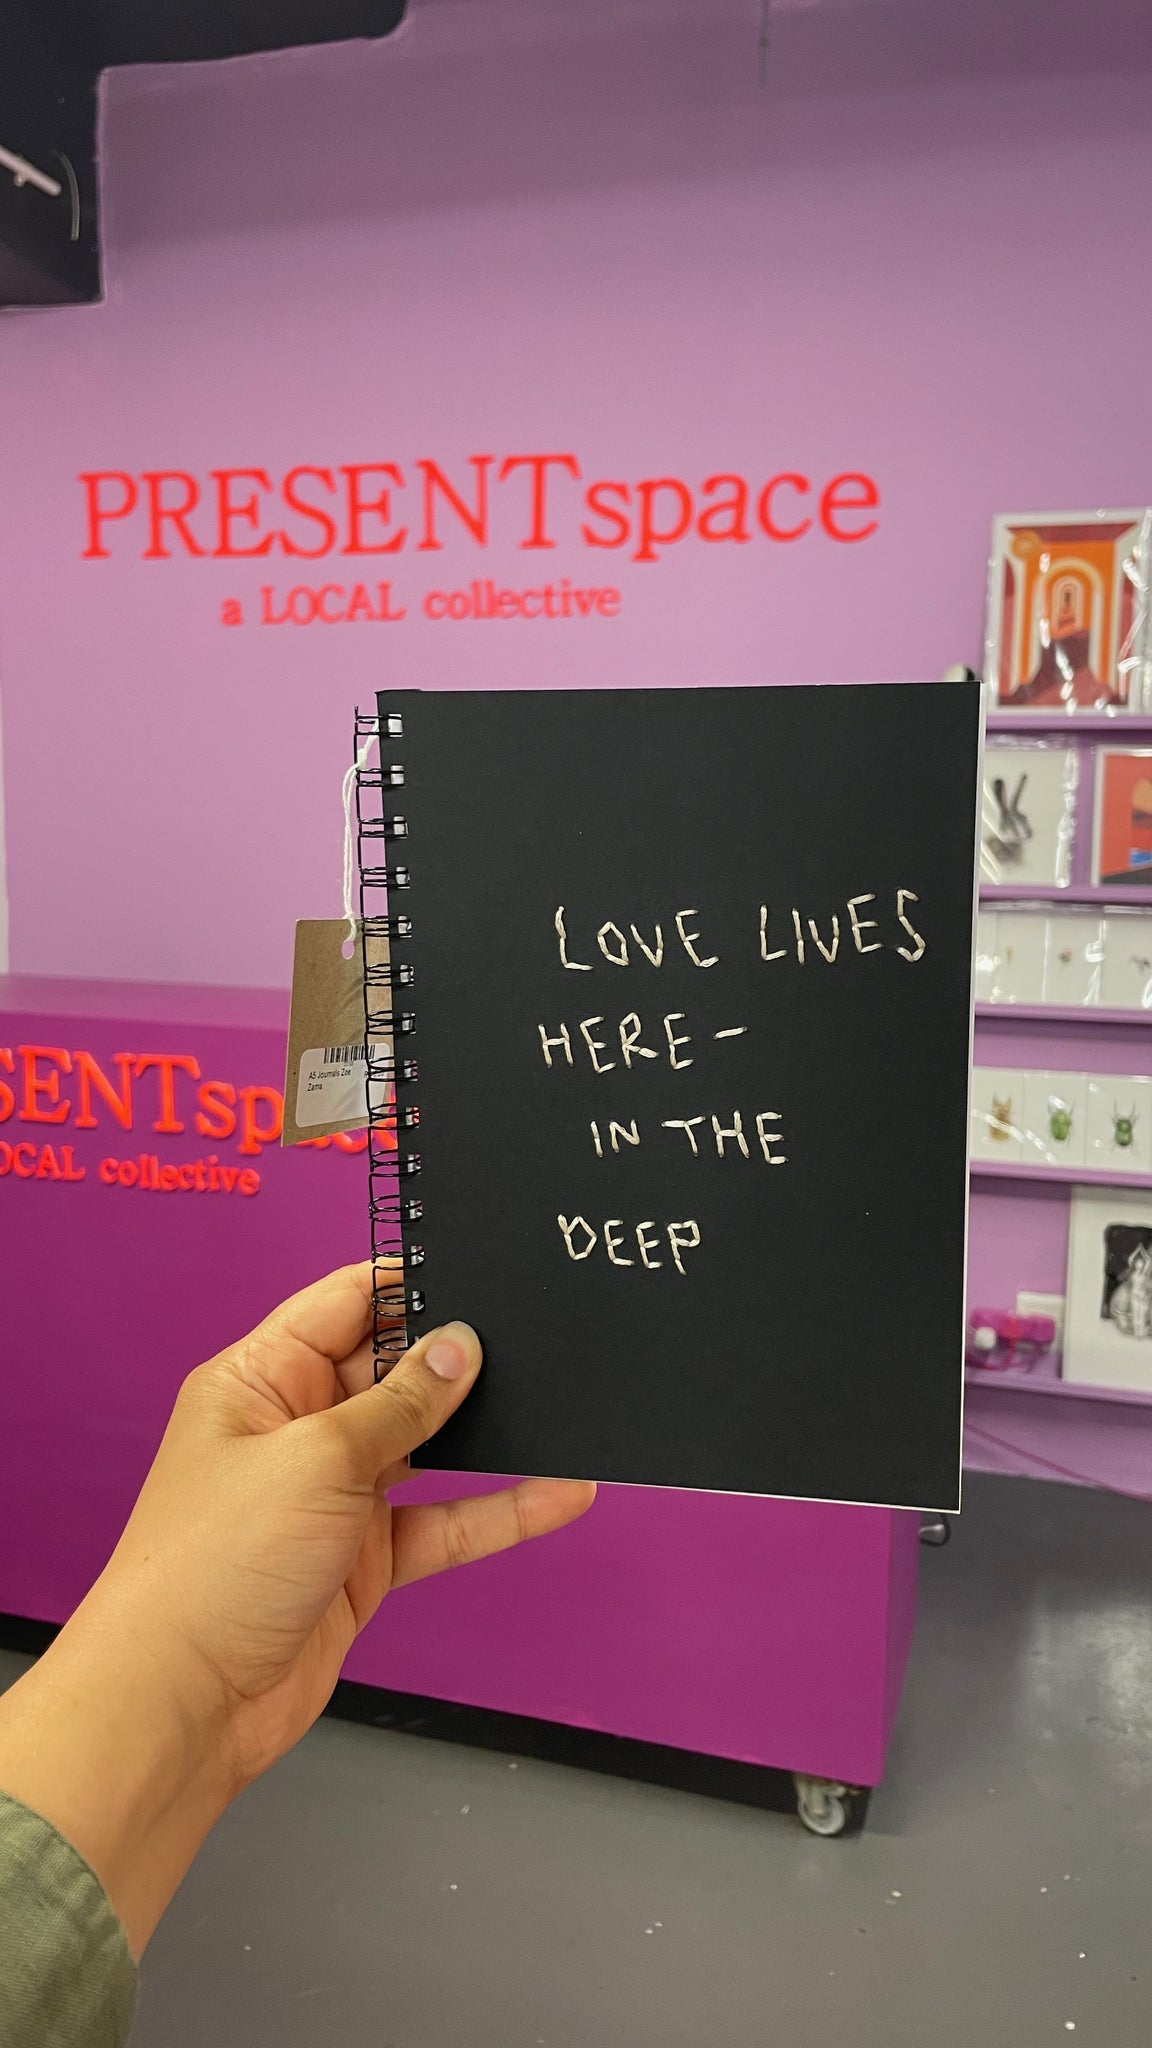 PRESENTspace
a LOCAL collective
LOVE LIVES
HERE-
IN THE
DEEP
A5 Journals Zoe
Zama
SENTsp
OCAL collective